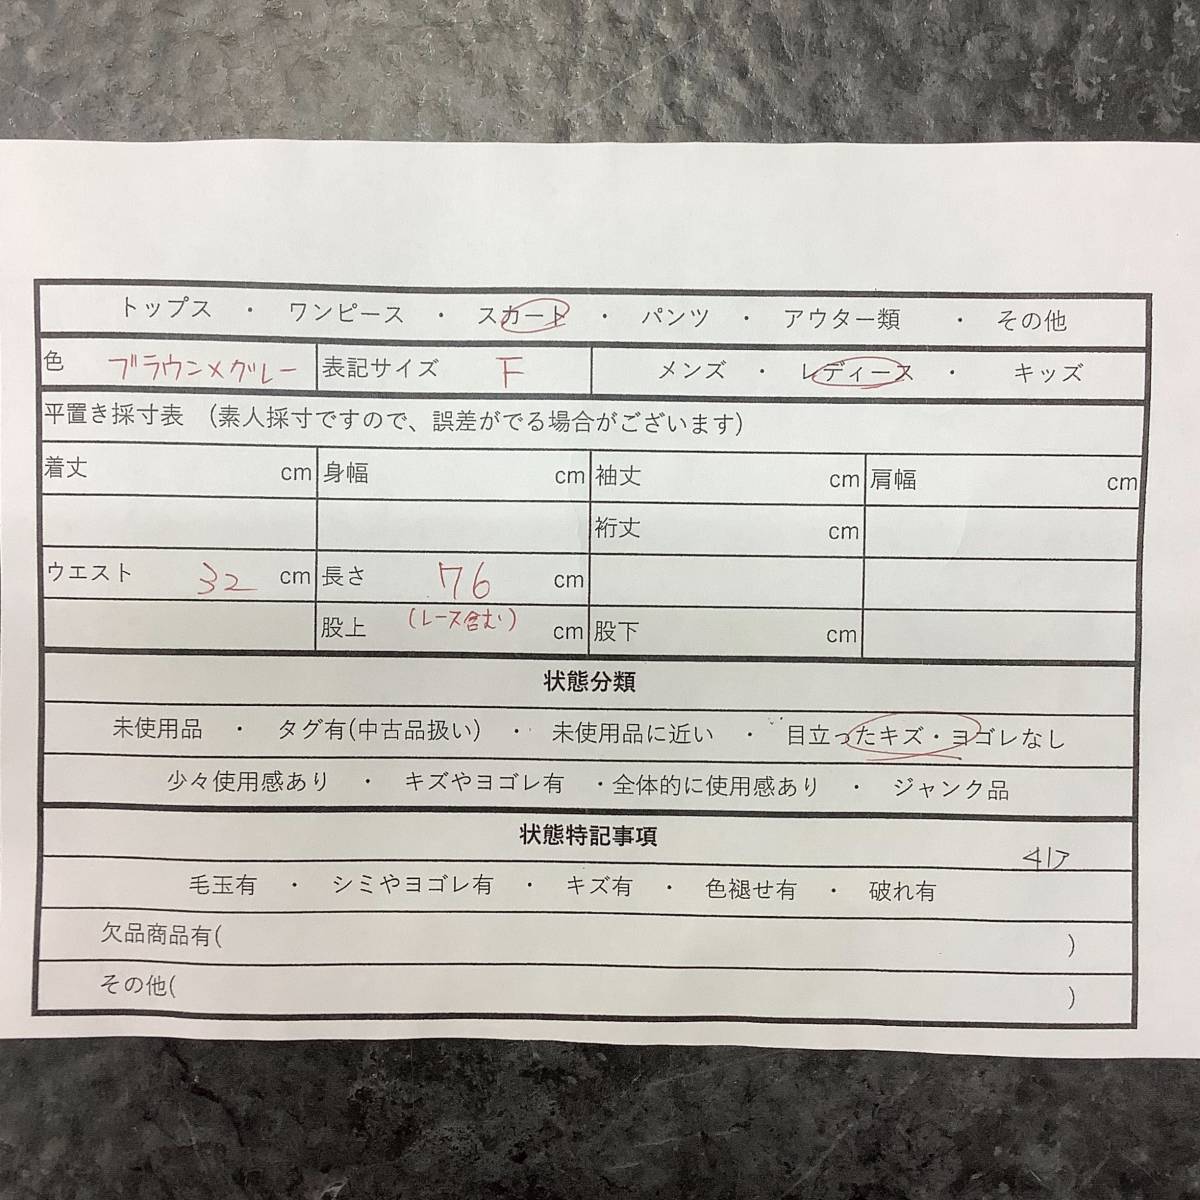 トップス ・ ワンピース ・ スカート ・ パンツ ・ アウター類 ・ その他
色 ブラウン×グレー 表記サイズ F メンズ ・ レディース ・ キッズ
平置き採寸表 (素人採寸ですので、誤差がでる場合がございます)
着丈 cm 身幅 cm 袖丈 cm 肩幅 cm
裄丈 cm
ウエスト 32 cm 長さ 76 cm
股上 (レース含む) cm 股下 cm
状態分類
未使用品 ・ タグ有(中古品扱い) ・ 未使用品に近い ・ 目立ったキズ・ヨゴレなし
少々使用感あり ・ キズやヨゴレ有 ・全体的に使用感あり ・ ジャンク品
状態特記事項
毛玉有 ・ シミやヨゴレ有 ・ キズ有 ・ 色褪せ有 ・ 破れ有
欠品商品有( )
その他( )